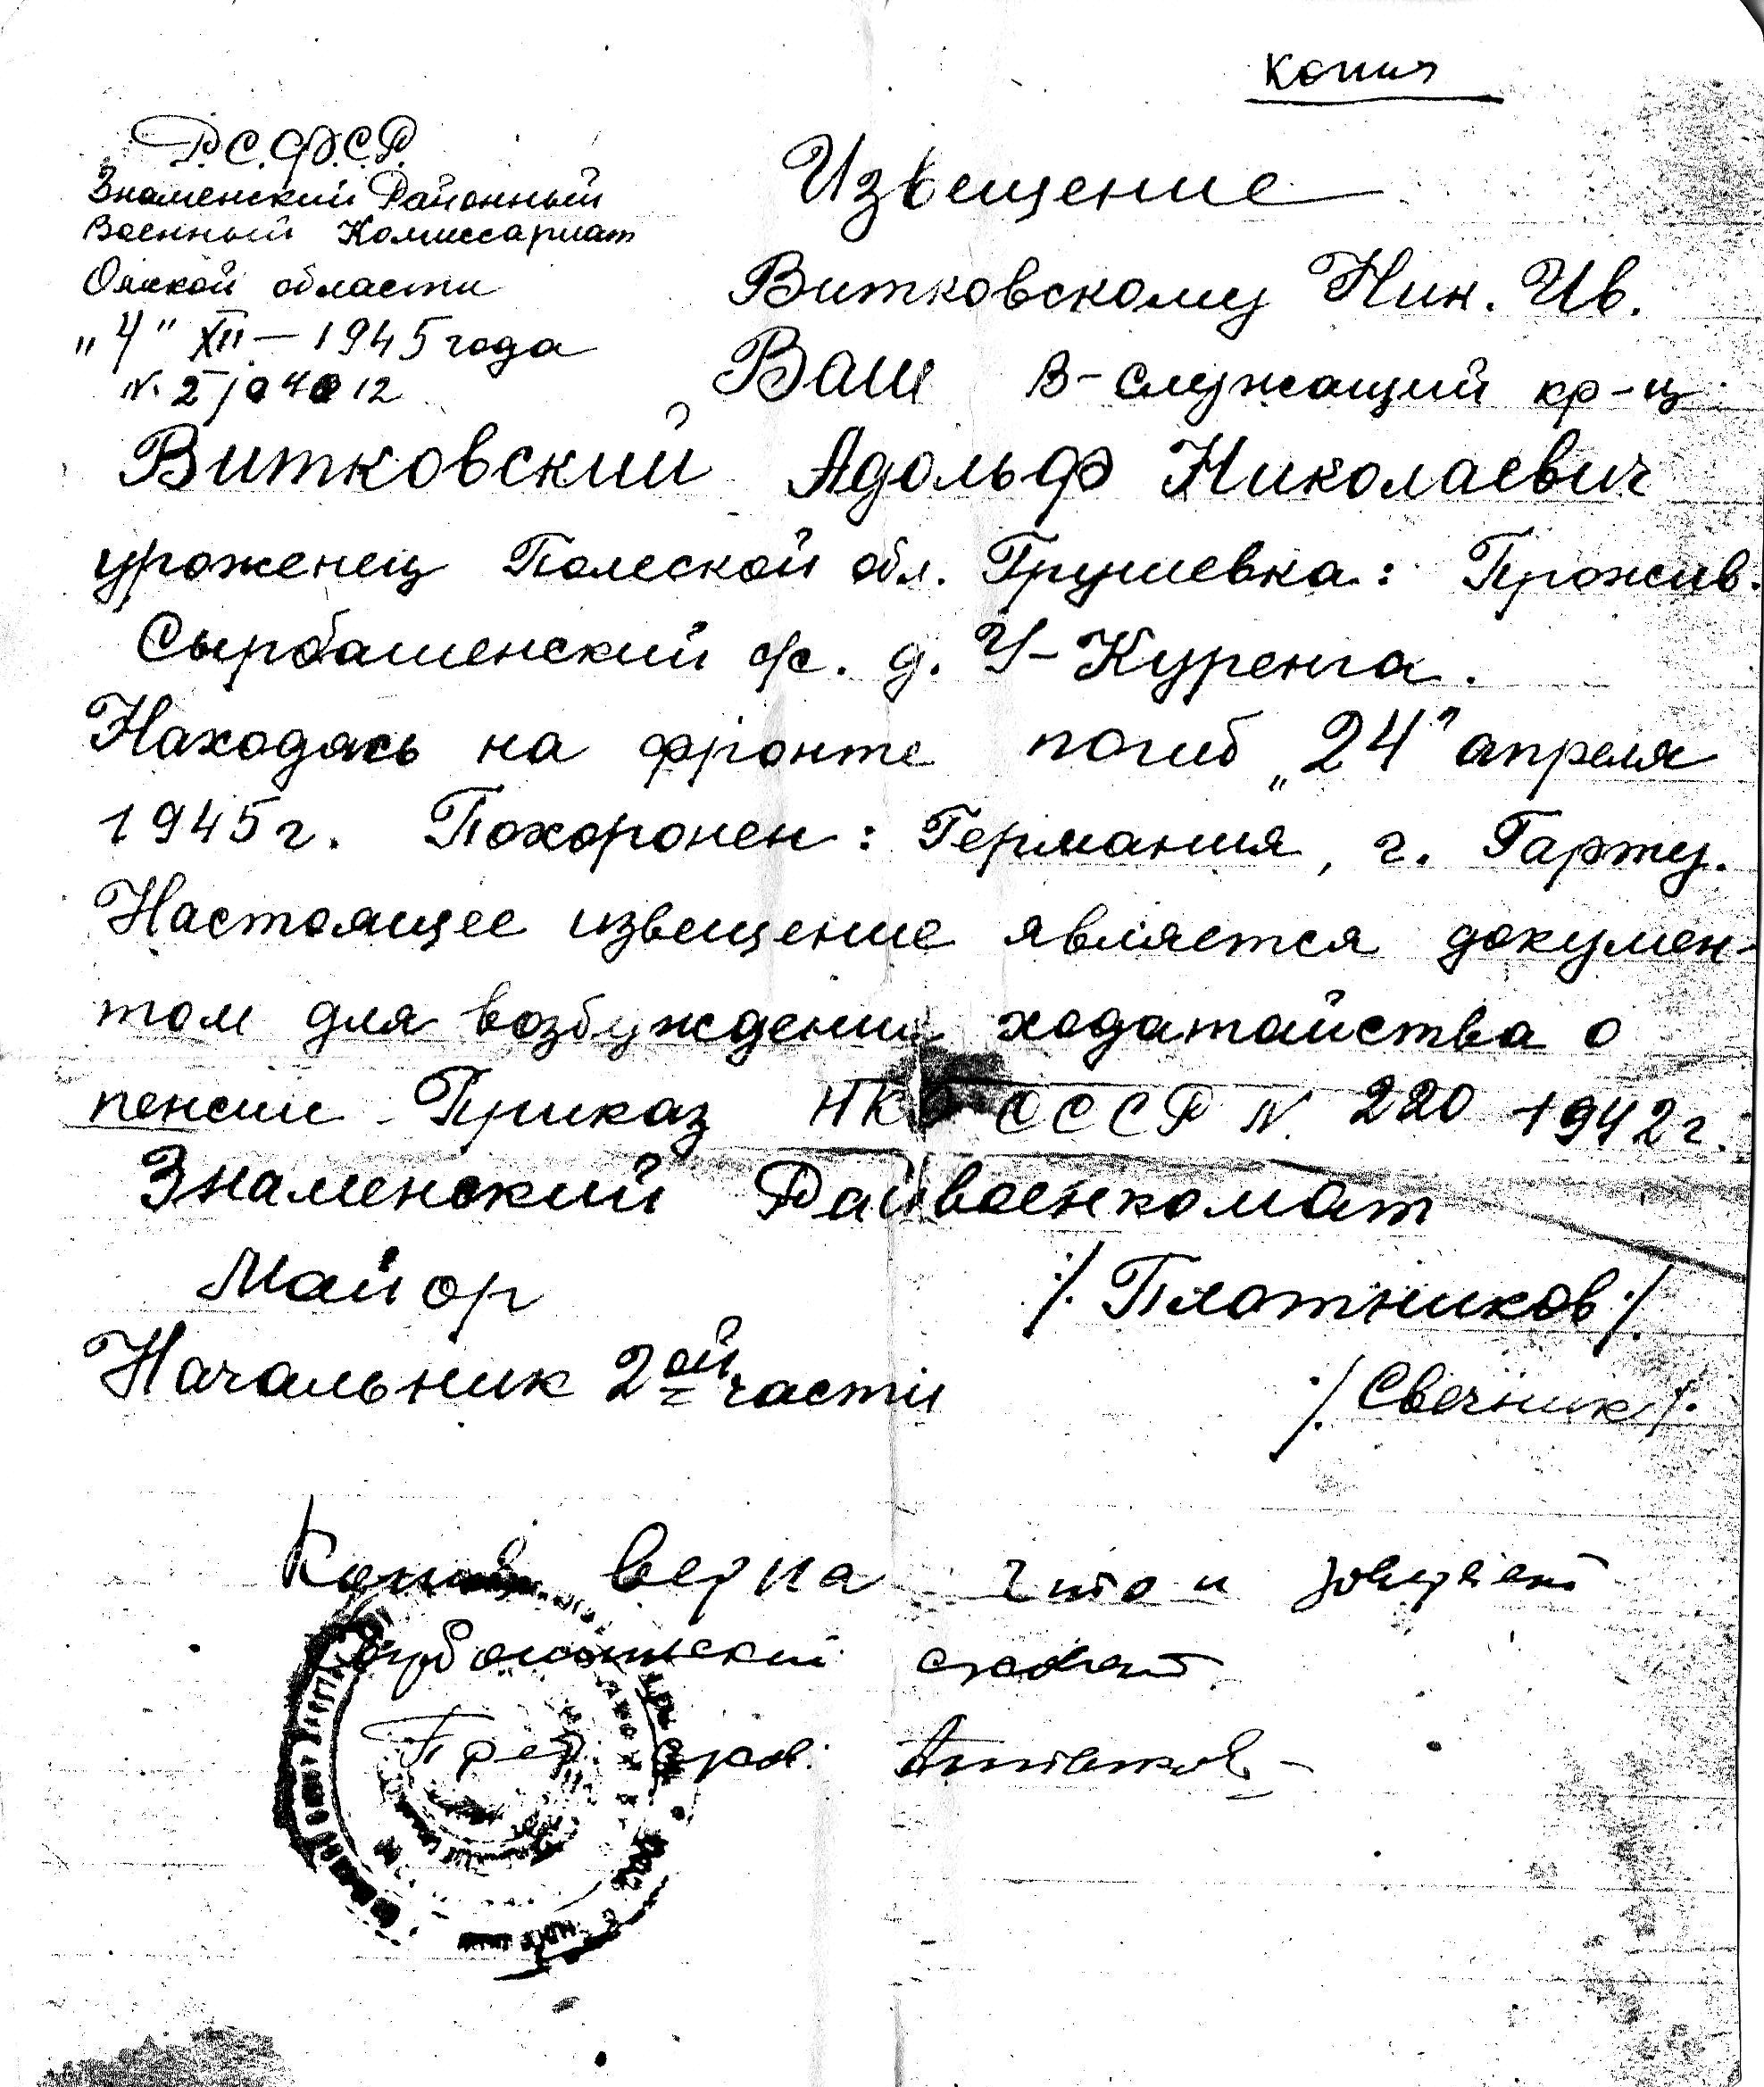 Копия
Р.С.Ф.С.Р.
Знаменский Районный
Военный Комиссариат
Омской области
"4" XII – 1945 года
Извещение
Витковскому Ник. Ив.
Ваш в-служащий кр-ц
Витковский Адольф Николаевич
уроженец Полеской обл. Грушевка: Прожив.
Сырбашенский с/с. д. У-Куренга.
Находясь на фронте погиб "24" апреля
1945 г. Похоронен: Германия, г. Гартц.
Настоящее извещение является докумен-
том для возбуждения ходатайства о
пенсии Приказ НКО СССР N. 220 1942 г.
Знаменский Райвоенкомат
Майор /Плотников/
Начальник 2ой части /Свечник/
Копия верна что и
Пред.